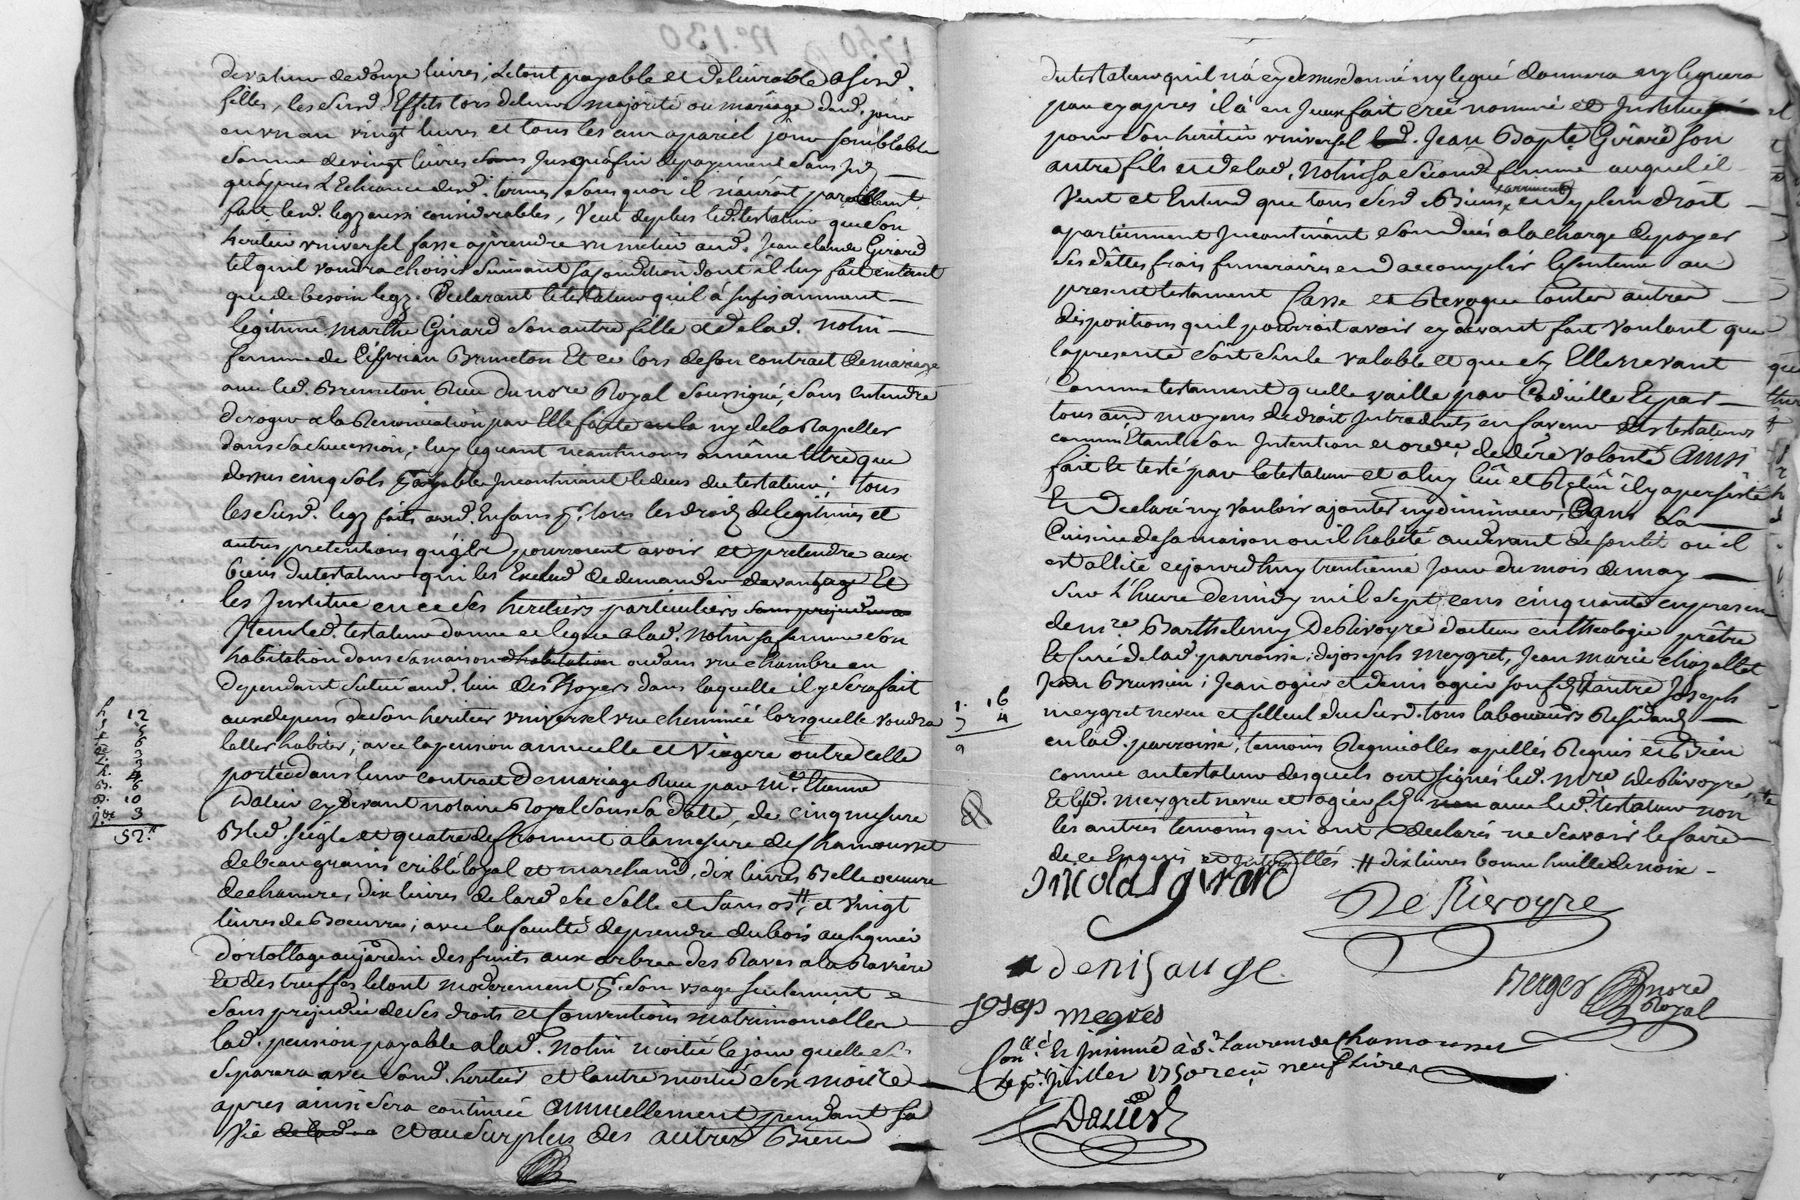 de valeur de douze livres, le tout payable et delivrable a sesd.
filles, les susd. Effets lors de leur majorité ou mariage dud. jour
en un an vingt livres et tous les ans a pareil jour semblable
somme de vingt livres jusqu'a fin de payement sans
qu'apres L'Echeance desd. termes sans quoi il n'auroit pareillement
fait lesd. legz aussi considerables, Veut de plus led. testateur que son
heritier universel fasse aprendre un metier aud. Jean claude Girard
tel qu'il voudra choisir suivant sa condition dont il luy fait entant
que de besoin legz. Declarant le testateur qu'il à sufisamment
legitimé Marthe Girard son autre fille et de lad. Notin
femme de Ciprian Bruneton Et ce lors de son contract de mariage
avec led. Bruneton Reçu du nore Royal soussigné, sans entendre
deroger a la Renonciation par Elle faite ny de la Rapeller
dans sa succession, luy leguant neantmoins a même titre que
dessus cinq sols payables incontinant le deces du testateur; tous
les susd. legz faits aud. Enfans pr. tous les droits de legitimes et
autres pretentions qu'ils pourroient avoir et pretendre aux
biens du testateur qui les Exclud de demander davantage Et
les Institue en ce ses heritiers particuliers sans prejudice
Item led. testateur donne et legue a lad. Notin sa femme son
habitation dans sa maison d'habitation ou dans une chambre en
dependant situé aud. lieu des Royers dans laquelle il y sera fait
aux depens de son heritier universel une cheminée lorsquelle voudra
laller habiter; avec la pension annuelle et Viagere outre celle
portée dans leur contract de mariage Reçu par Me. Etienne
Dalin cy devant notaire Royal sous sa datte, de cinq mesure
Bled seigle et quatre de froment a la mesure de Chamousset
de beau grain crible loyal et marchand, dix livres Belle oeuvre
de chanvre, dix livres de lard de selle et sans os #, et vingt
livres de Boeurre; avec la faculté de prendre du bois au lignier
d'ortollage au jardin des fruits aux arbres des Raves a la Raviere
Et des truffes le tout moderement pr. son usage seulement et
sans prejudice de ses droits et Conventions matrimonialles
lad. pension payable a lad. Notin moitié le jour quelle se
separera avec sond. heritier et l'autre moitié six mois
apres ainsi sera continué annuellement pendant sa
Vie et au surplus des autres Biens
12
5
6
3
4
6
10
3
52.#
du testateur qu'il n'a cy dessus donné ny legué donnera ny leguera
par cy apres il à en Iceux fait créé nommé et Institué
pour son heritier universel led. Jean Bapte Girard son
autre fils et de lad. Notin sa seconde femme auquel il
Veut et Entend que tous sesd. Biens en plein droit
apartiennent Incontinant son deces a la charge de payer
ses dettes frais funeraires et d'accomplir le contenu au
present testament Casse et Revoque toutes autres
dispositions qu'il pourroit avoir cy devant fait voulant que
la presente soit seule valable et que sy Elle ne vaut
Comme testament quelle vaille par Codicille Et par
tous aud. moyens de droit Introduits en faveur des testateurs
comm'Etant son Intention et ordre. de dere Volonté Ainsi
fait Et testé par le testateur et a luy lû et Relû il y a persisté
Et Declaré ny vouloir ajouter ny diminuer, Dans la
Cuisine de sa maison ou il habite au devant de son lit ou il
est allité cejourd'huy trentieme jour du mois de may
Sur L'heure de midy mil sept cens cinquante en presence
de mre. Barthelemy DeRivoyre docteur en theologie prêtre
Et Curé de lad. parroisse; de joseph meygret, Jean Marie chazallet
Jean Brussieu; Jean ogier et denis ogier son fils et autre Joseph
meygret neveu et filleul du susd. tous laboureurs Residants
en lad. parroisse, temoins Regnicolles apellés Requis et Bien
connu au testateur desquels ont signés led. Mre DeRivoyre,
Et lesd. meygret neveu et ogier fils avec led. testateur non
les autres temoins qui ont declarés ne scavoir le faire
de ce Enquis et Interpellés # dix livres bonne huille de noix
1. 16
3 4
9
nicolas girard
De Rievoyre
denis auge
Berger nore Royal
josep megres
Conllé. Et Insinué à St. Laurent de Chamousset
Le pr. juillet 1750 reçu neuf livres